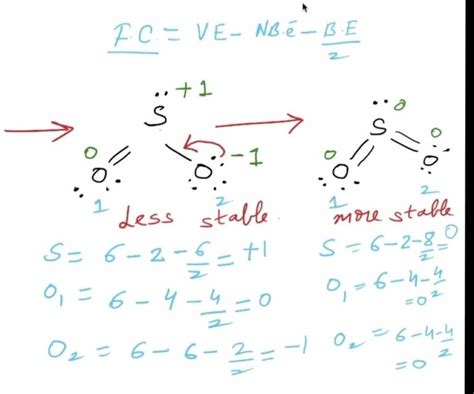 F.C = VE - NBē - B.E/2
S +1
0 O O -1
1 2
Less stable
S = 6 - 2 - 6/2 = +1
O₁ = 6 - 4 - 4/2 = 0
O₂ = 6 - 6 - 2/2 = -1
S 0
0 O O 0
1 2
more stable
S = 6-2-8/2=0
O₁ = 6-4-4/2
=0
O₂ = 6-4-4/2
=0